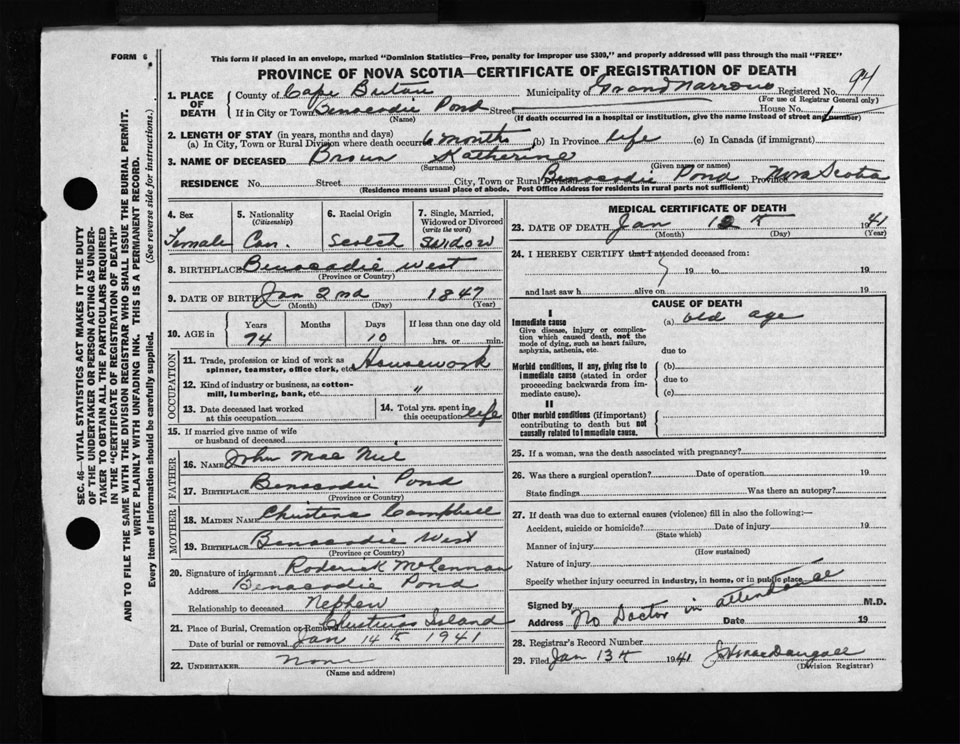 FORM 6
This form if placed in an envelope, marked "Dominion Statistics—Free, penalty for improper use $300," and properly addressed will pass through the mail "FREE"
PROVINCE OF NOVA SCOTIA—CERTIFICATE OF REGISTRATION OF DEATH
1. PLACE OF DEATH
County of Cape Breton Municipality of Grand Narrows Registered No. 94
(For use of Registrar General only)
If in City or Town Benacadie Pond Street House No.
(Name) (If death occurred in a hospital or institution, give the name instead of street and number)
2. LENGTH OF STAY (in years, months and days)
(a) In City, Town or Rural Division where death occurred 6 months (b) In Province life (c) In Canada (if immigrant)
3. NAME OF DECEASED Brown Katherine
(Surname) (Given name or names)
RESIDENCE No. Street City, Town or Rural Division Benacadie Pond Province Nova Scotia
(Residence means usual place of abode. Post Office Address for residents in rural parts not sufficient)
4. Sex
Female
5. Nationality (Citizenship)
Can.
6. Racial Origin
Scotch
7. Single, Married, Widowed or Divorced (write the word)
Widow
8. BIRTHPLACE Benacadie West
(Province or Country)
9. DATE OF BIRTH Jan 2nd 1847
(Month) (Day) (Year)
10. AGE in
Years Months Days If less than one day old
94 10 hrs. or min.
OCCUPATION
11. Trade, profession or kind of work as spinner, teamster, office clerk, etc. Housework
12. Kind of industry or business, as cotton-mill, lumbering, bank, etc. "
13. Date deceased last worked at this occupation
14. Total yrs. spent in this occupation life
15. If married give name of wife or husband of deceased
FATHER
16. NAME John Mac Neil
17. BIRTHPLACE Benacadie Pond
(Province or Country)
MOTHER
18. MAIDEN NAME Christena Campbell
19. BIRTHPLACE Benacadie West
(Province or Country)
20. Signature of informant Roderick McLennan
Address Benacadie Pond
Relationship to deceased Nephew
21. Place of Burial, Cremation or Removal Christmas Island
Date of burial or removal Jan 14th 1941
22. UNDERTAKER None
(Name and address)
MEDICAL CERTIFICATE OF DEATH
23. DATE OF DEATH Jan 12th 1941
(Month) (Day) (Year)
24. I HEREBY CERTIFY that I attended deceased from:
19 to 19
and last saw h alive on 19
CAUSE OF DEATH
I
Immediate cause (a) old age
Give disease, injury or complication which caused death, not the mode of dying, such as heart failure, asphyxia, asthenia, etc.
due to
Morbid conditions, if any, giving rise to immediate cause (stated in order proceeding backwards from immediate cause)
(b)
due to
(c)
II
Other morbid conditions (if important) contributing to death but not causally related to immediate cause.
25. If a woman, was the death associated with pregnancy?
26. Was there a surgical operation? Date of operation 19
State findings Was there an autopsy?
27. If death was due to external causes (violence) fill in also the following:—
Accident, suicide or homicide? Date of injury 19
(State which)
Manner of injury
(How sustained)
Nature of injury
Specify whether injury occurred in industry, in home, or in public place
Signed by No Doctor in attendance M.D.
Address Date 19
28. Registrar's Record Number
29. Filed Jan 13th 1941 J H MacDougall
(Division Registrar)
SEC. 46—VITAL STATISTICS ACT MAKES IT THE DUTY
OF THE UNDERTAKER OR PERSON ACTING AS UNDER-
TAKER TO OBTAIN ALL THE PARTICULARS REQUIRED
IN THE "CERTIFICATE OF REGISTRATION OF DEATH"
AND TO FILE THE SAME WITH THE DIVISION REGISTRAR WHO SHALL ISSUE THE BURIAL PERMIT.
WRITE PLAINLY WITH UNFADING INK. THIS IS A PERMANENT RECORD.
Every item of information should be carefully supplied. (See reverse side for instructions.)